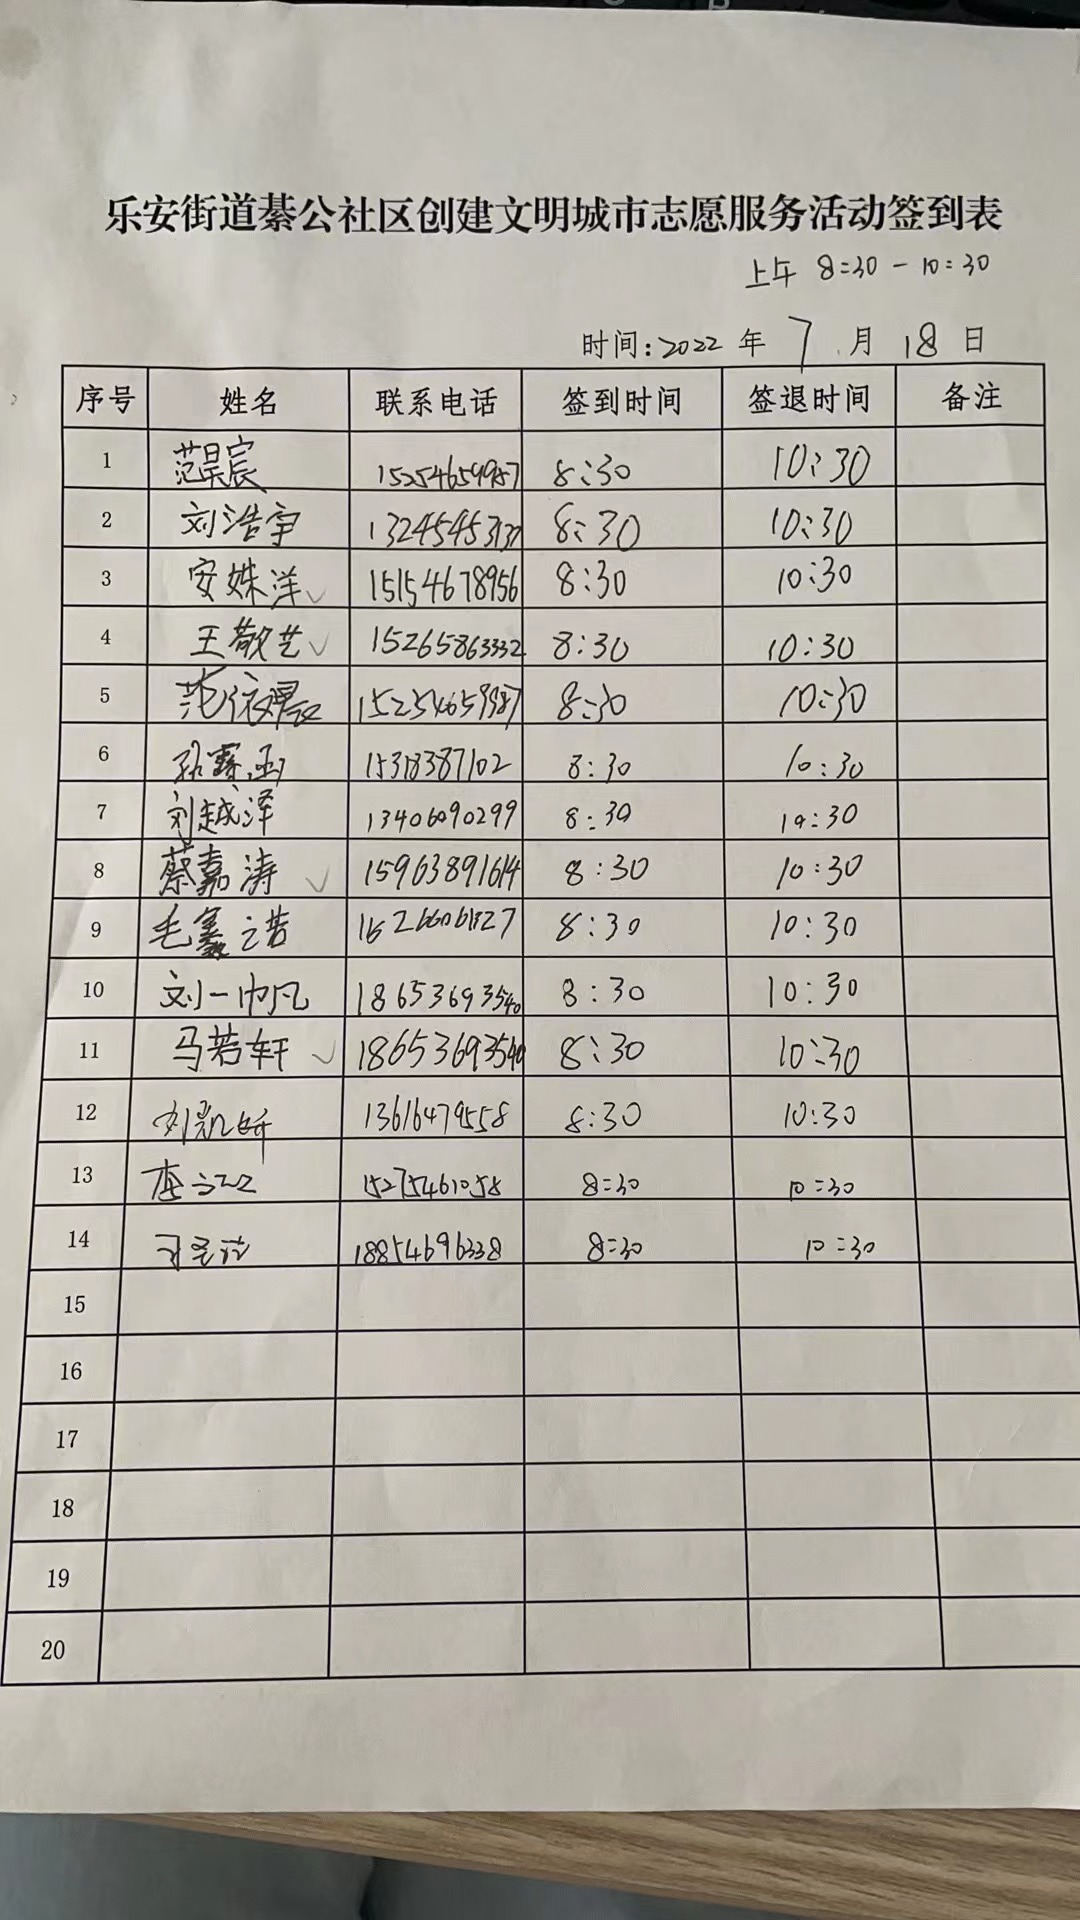 乐安街道綦公社区创建文明城市志愿服务活动签到表
上午 8:30 - 10:30
时间:2022 年 7 月 18 日
序号 姓名 联系电话 签到时间 签退时间 备注
1 范昊宸 15254659987 8:30 10:30
2 刘浩宇 13245453137 8:30 10:30
3 安姝洋 15154678956 8:30 10:30
4 王敬艺 15265863332 8:30 10:30
5 15254659987 8:30 10:30
6 15318387102 8:30 10:30
7 刘越泽 13406090299 8:30 10:30
8 蔡嘉涛 15963891614 8:30 10:30
9 8:30 10:30
10 刘一帆 18653693540 8:30 10:30
11 马若轩 18653693540 8:30 10:30
12 13616479558 8:30 10:30
13 15275461058 8:30 10:30
14 18854696338 8:30 10:30
15
16
17
18
19
20